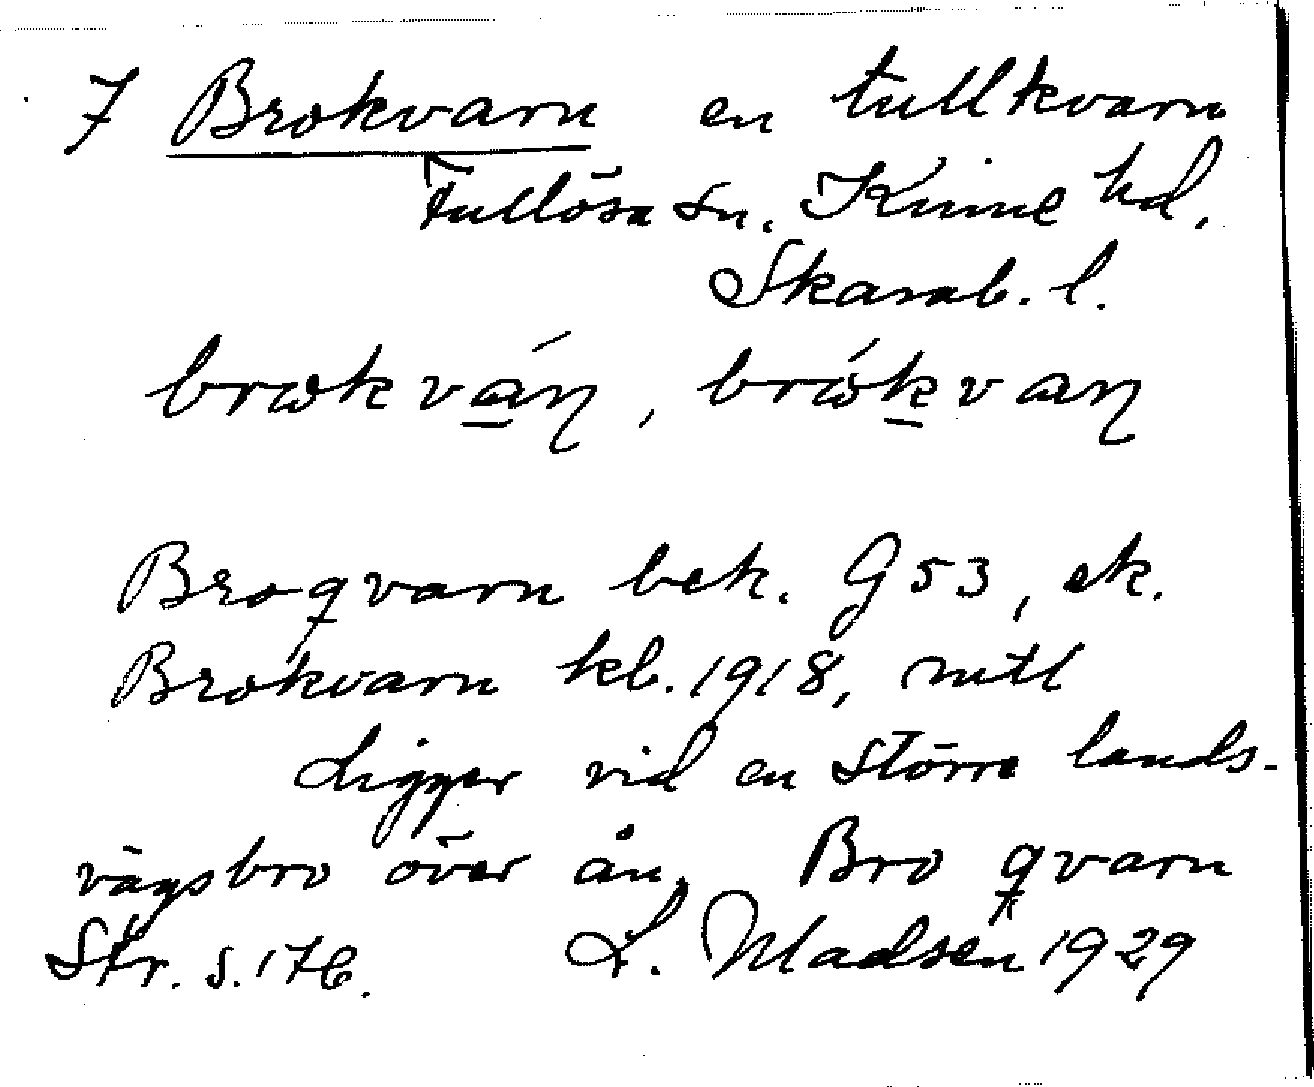 7 Brokvarn en tullkvarn
Fullösa sn. Kinne hd.
Skarab. l.
brωkván, brώkvan
Broqvarn bek. G53, ek.
Brokvarn kb. 1918,
Ligger vid en större lands-
vägsbro över ån. Bro qvarn
Str. s. 176. L. Madsen 1929